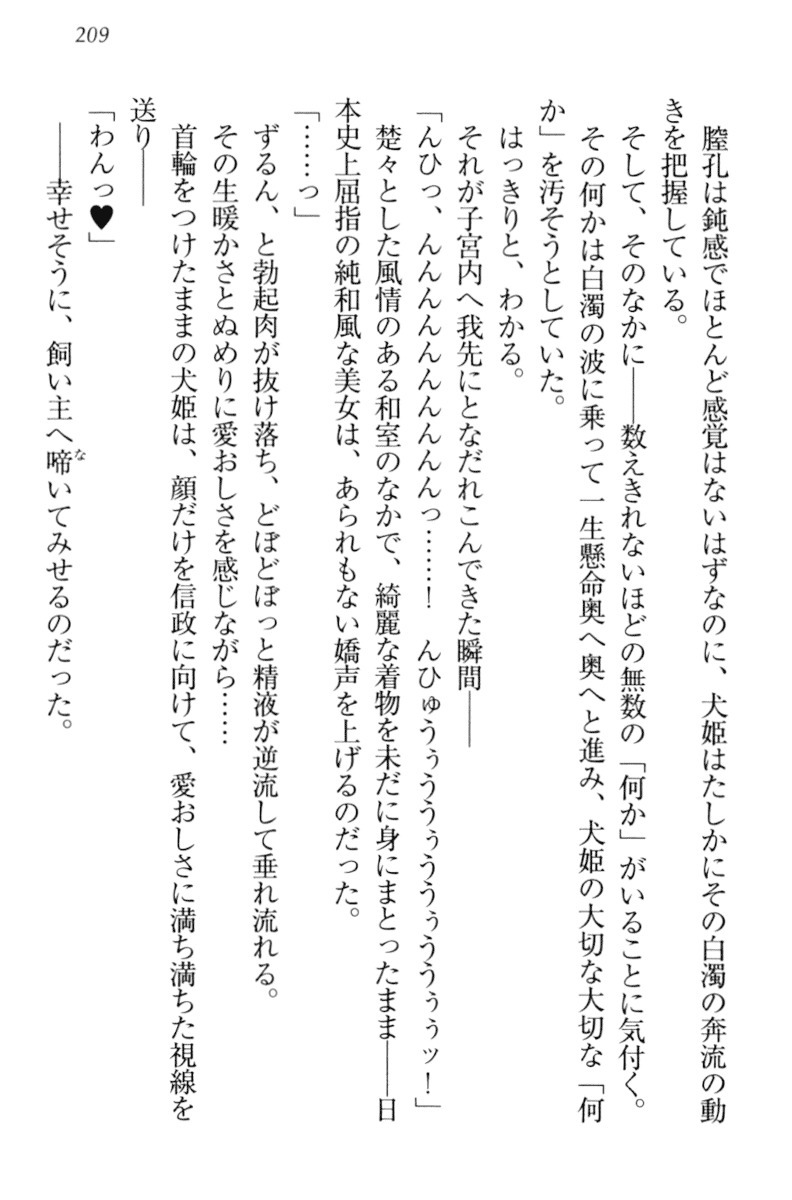 209
膣孔は鈍感でほとんど感覚はないはずなのに、犬姫はたしかにその白濁の奔流の動
きを把握している。
そして、そのなかに――数えきれないほどの無数の「何か」がいることに気付く。
その何かは白濁の波に乗って一生懸命奥へ奥へと進み、犬姫の大切な大切な「何
か」を汚そうとしていた。
はっきりと、わかる。
それが子宮内へ我先にとなだれこんできた瞬間――
「んひっ、んんんんんんんんんっ……！　んひゅうぅううぅううぅううぅぅッ！」
楚々とした風情のある和室のなかで、綺麗な着物を未だに身にまとったまま――日
本史上屈指の純和風な美女は、あられもない嬌声を上げるのだった。
「……っ」
ずるん、と勃起肉が抜け落ち、どぼどぼっと精液が逆流して垂れ流れる。
その生暖かさとぬめりに愛おしさを感じながら……
首輪をつけたままの犬姫は、顔だけを信政に向けて、愛おしさに満ち満ちた視線を
送り――
「わんっ♥」
――幸せそうに、飼い主へ啼いてみせるのだった。
な